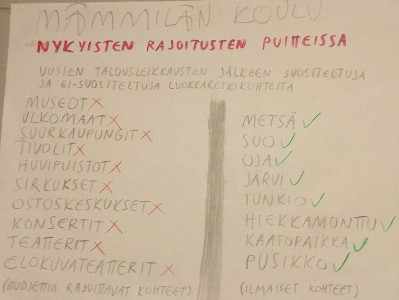 MÄMMILÄN KOULU
NYKYISTEN RAJOITUSTEN PUITTEISSA
UUSIEN TALOUSLEIKKAUSTEN JÄLKEEN SUOSITELTUJA
JA EI-SUOSITELTUJA LUOKKARETKIKOHTEITA
MUSEOT X
ULKOMAAT X
SUURKAUPUNGIT X
TIVOLIT X
HUVIPUISTOT X
SIRKUKSET X
OSTOSKESKUKSET X
KONSERTIT X
TEATTERIT X
ELOKUVATEATTERIT X
(BUDJETTIA RAJOITTAVAT KOHTEET)
METSÄ ✓
SUO ✓
OJA ✓
JÄRVI ✓
TUNKIO ✓
HIEKKAMONTTU ✓
KAATOPAIKKA ✓
PUSIKKO ✓
(ILMAISET KOHTEET)